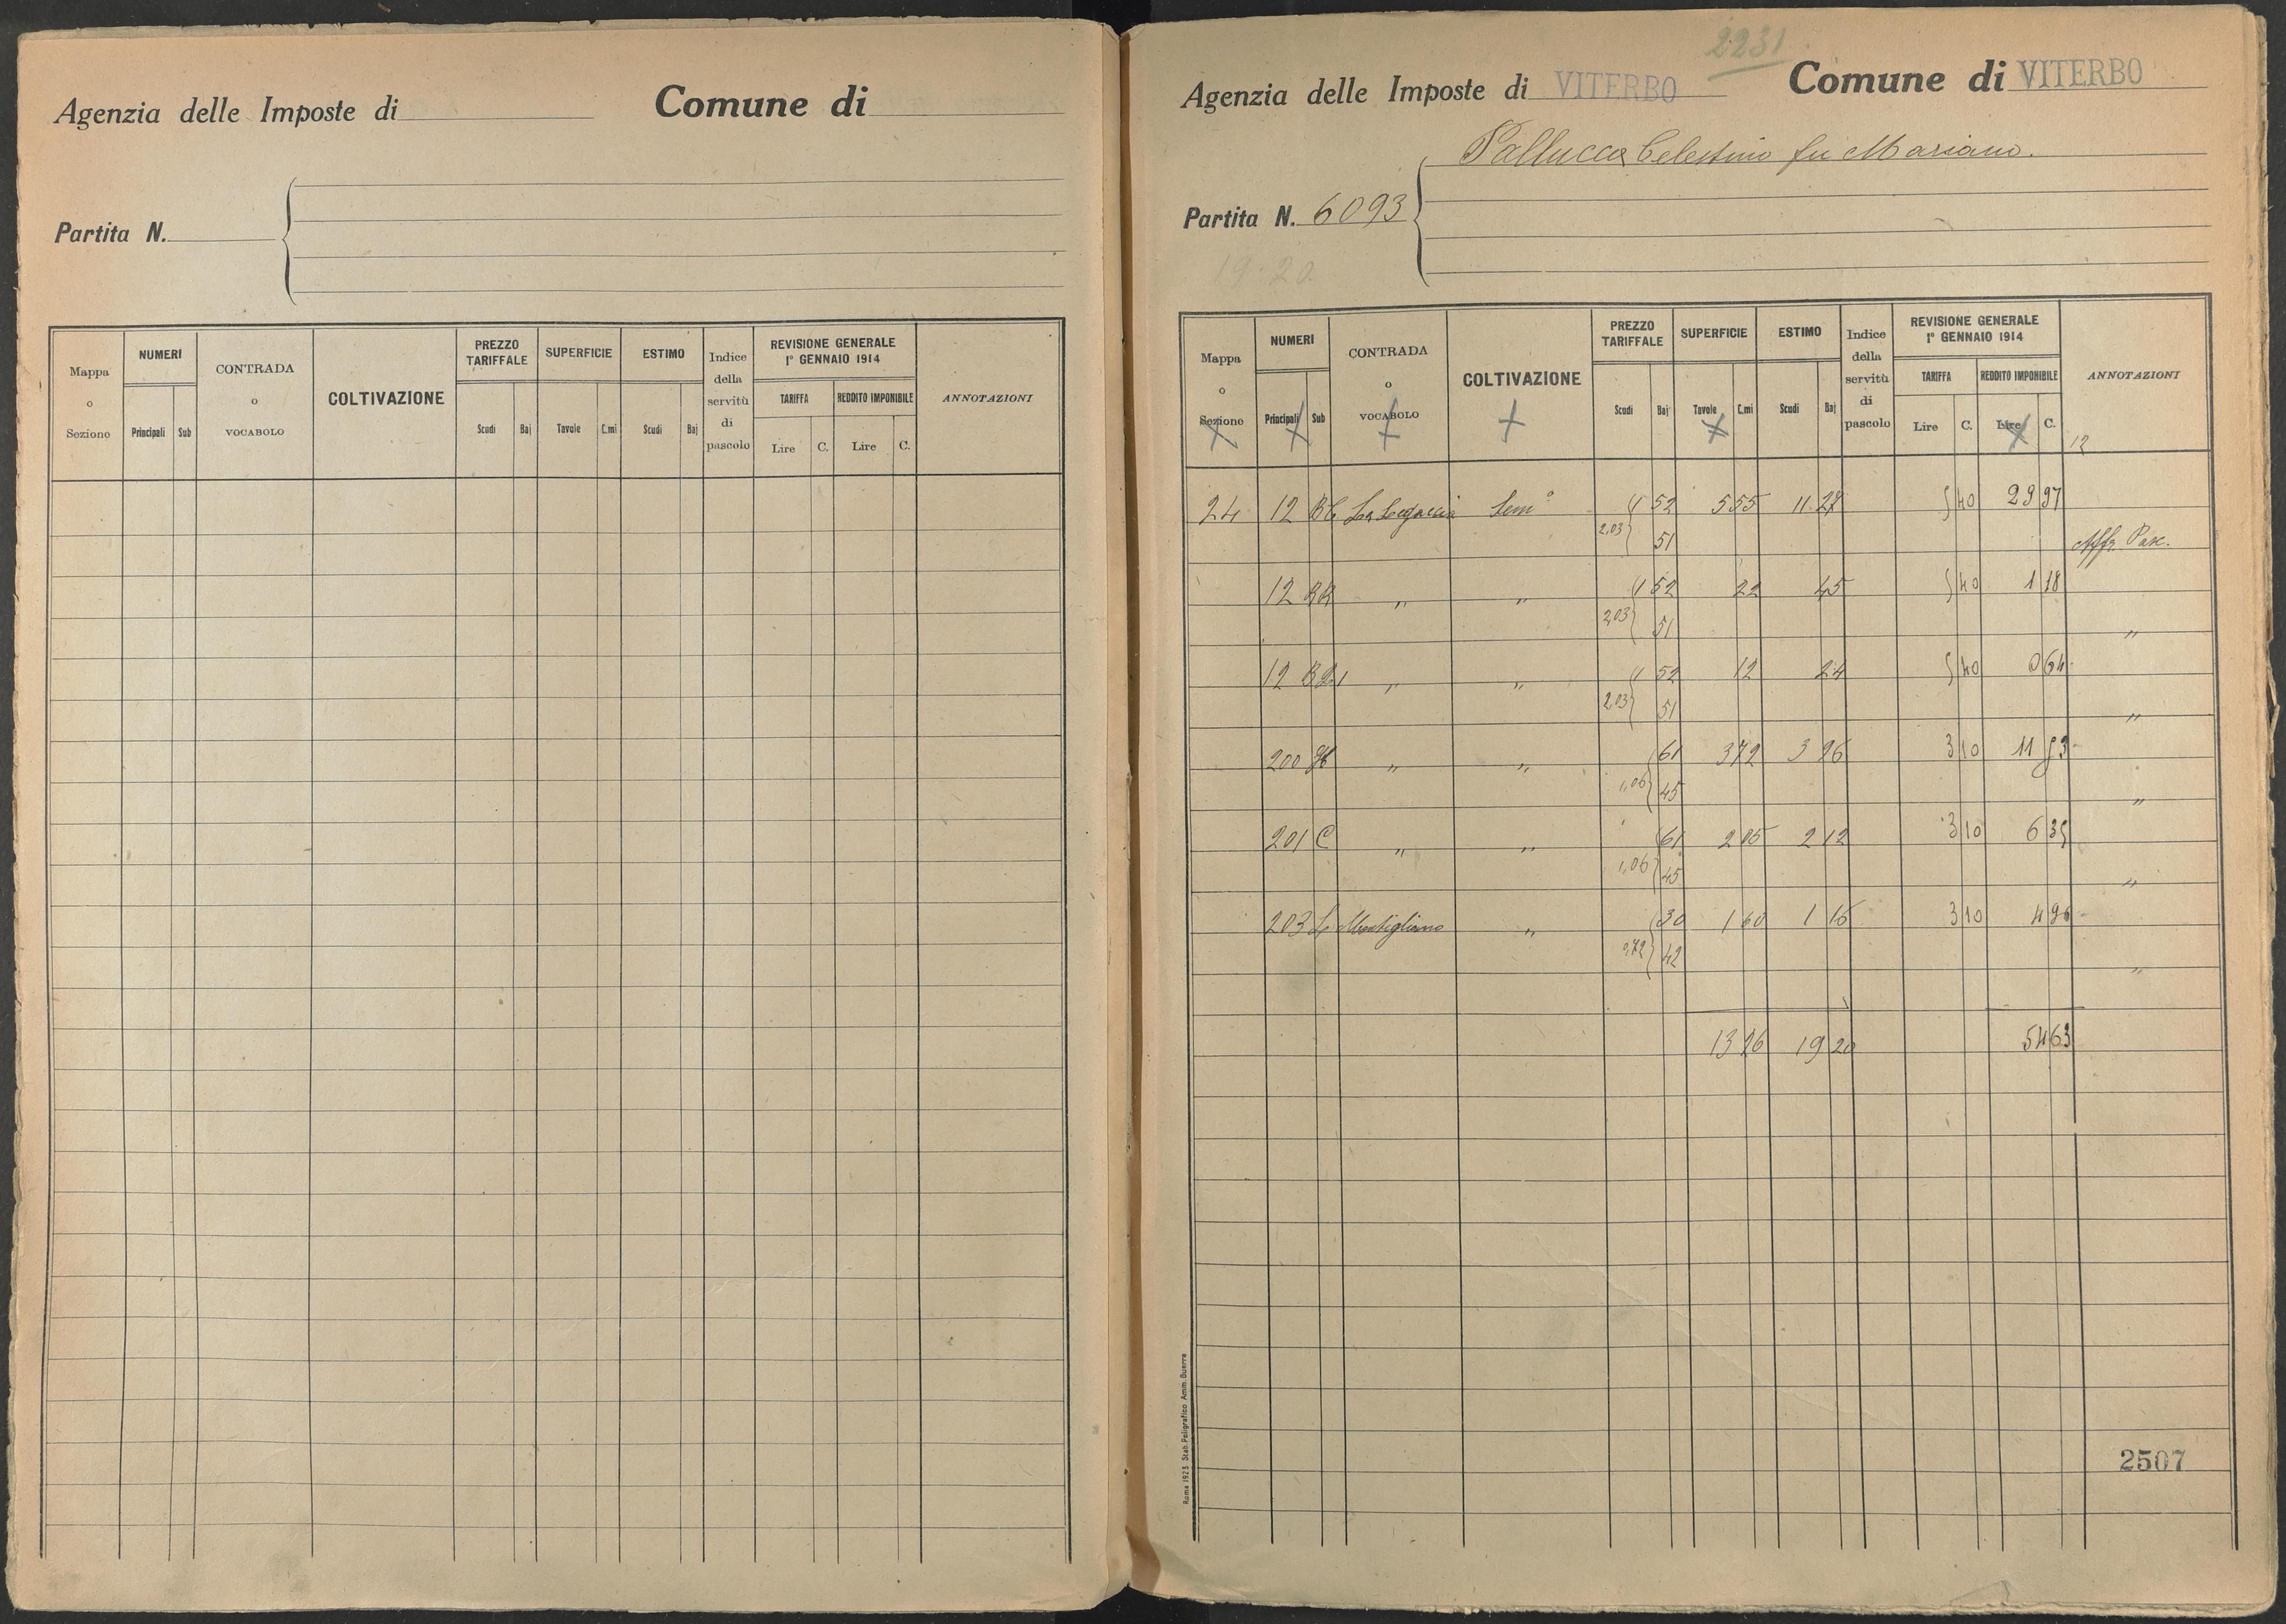 Agenzia delle Imposte di Comune di
Partita N.
Mappa o Sezione NUMERI Principali Sub CONTRADA o VOCABOLO COLTIVAZIONE PREZZO TARIFFALE Scudi Baj SUPERFICIE Tavole C.mi ESTIMO Scudi Baj Indice della servitù di pascolo REVISIONE GENERALE 1° GENNAIO 1914 TARIFFA Lire C. REDDITO IMPONIBILE Lire C. ANNOTAZIONI
2231
Agenzia delle Imposte di VITERBO Comune di VITERBO
Pallucca Celestino fu Mariano.
Partita N. 6093
19.20
Mappa o Sezione NUMERI Principali Sub CONTRADA o VOCABOLO COLTIVAZIONE PREZZO TARIFFALE Scudi Baj SUPERFICIE Tavole C.mi ESTIMO Scudi Baj Indice della servitù di pascolo REVISIONE GENERALE 1° GENNAIO 1914 TARIFFA Lire C. REDDITO IMPONIBILE Lire C. ANNOTAZIONI
12
24 12 Sem° 1 52 5 55 11 27 5 40 29 97
2,03 51 Affr. Pasc.
12 " " 1 52 22 45 5 40 1 18
2,03 51 "
12 " " 1 52 12 24 5 40 0 64
2,03 51 "
200 " " 61 3 72 3 96 3 10 11 53
1,06 45 "
201 C " " 61 2 05 2 12 3 10 6 35
1,06 45 "
203 " 30 1 60 1 16 3 10 4 96
0,72 42 "
13 26 19 20 54 63
2507
Roma 1923 Stab. Poligrafico Amm. Guerra